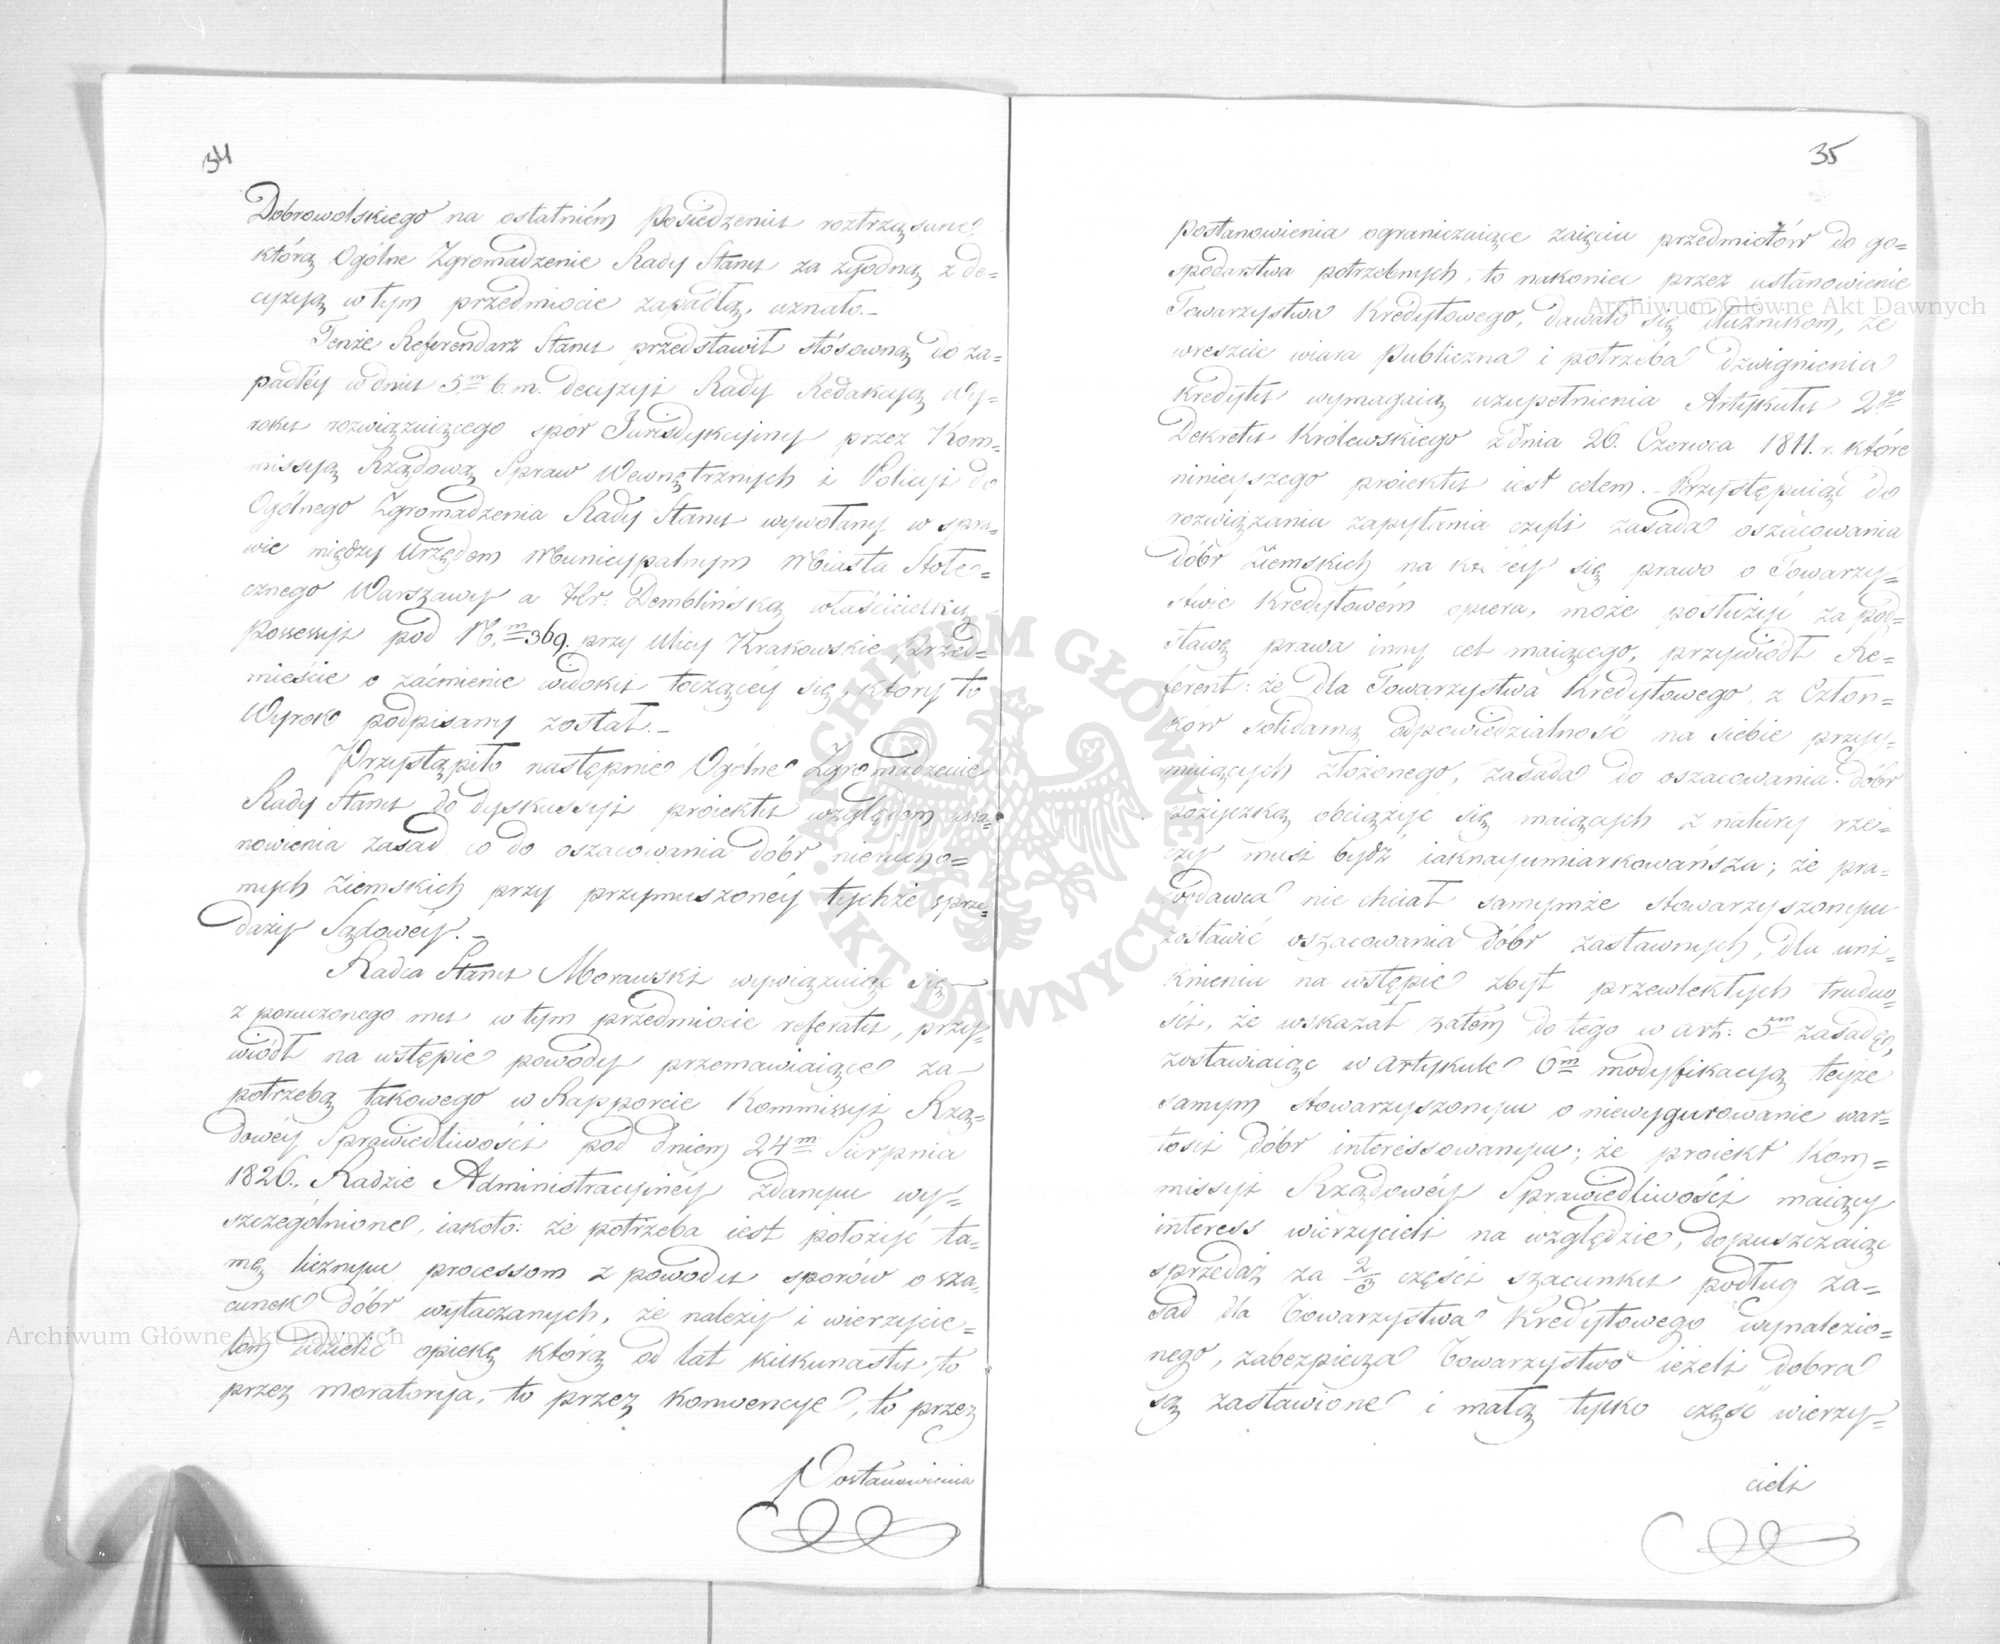 34
Dobrowolskiego na ostatniém Posiedzeniu roztrząsane
którą Ogólne Zgromadzenie Rady Stanu za zgodną z de=
cyzyją w tym przedmiocie zapadłą, uznało._
Tenże Referendarz Stanu przedstawił stósowną do za=
padłéy w dniu 5.m b. m. decyzyi Rady Redakcyją Wy=
roku rozwiązuiącego spór Jurisdykcyiny przez Kom=
missyją Rządową Spraw Wewnętrznych i Policyi do
Ogólnego Zgromadzenia Rady Stanu wywołany w spra=
wie między Urzędem Municypalnym Miasta Stołe=
cznego Warszawy a Hr: Demblińską właścicielką
Possessyi pod N.m 369. przy Ulicy Krakowskie Przed=
mieście o zaćmienie widoku toczącéy się, który to
Wyrok podpisany został._
Przystąpiło następnie Ogólne Zgromadzenie
Rady Stanu do dyskussyi proiektu względem usta=
nowienia zasad co do oszacowania dóbr nierucho=
mych Ziemskich przy przymuszonéy tychże sprze=
daży Sądowéy._
Radca Stanu Morawski wywiązuiąc się
z poruczonego mu w tym przedmiocie referatu, przy=
wiódł na wstępie powody przemawiaiące za
potrzebą takowego w Rapporcie Kommissyi Rzą=
dowéy Sprawiedliwości pod dniem 24m Sierpnia
1826. Radzie Administracyinéy zdanym wy=
szczególnione, iakoto: że potrzeba iest położyć ta=
mę licznym processom z powodu sporów o sza=
cunek dóbr wytaczanych, że należy i wierzycie=
lom udzielić opiekę którą od lat kilkunastu, to
przez moratorya, to przez konwencye, to przez
Postanowienia
35
Postanowienia ograniczaiące zaięciu przedmiotów do go=
spodarstwa potrzebnych, to nakoniec przez ustanowienie
Towarzystwa Kredytowego, dawało się dłużnikom, że
wreszcie wiara Publiczna i potrzeba dzwignienia
Kredytu wymagaią uzupełnienia Artykułu 2go
Dekretu Królewskiego z dnia 26. Czerwca 1811. r. które
ninieyszego proiektu iest celem._ Przystępuiąc do
rozwiązania zapytania czyli zasada oszacowania
dóbr Ziemskich na któréy się prawo o Towarzy=
stwie Kredytowém opiera, może posłużyć za pod=
stawę prawa inny cel maiącego, przywiódł Re=
ferent: że dla Towarzystwa Kredytowego z Człon=
ków solidarną odpowiedzialność na siebie przyy=
muiących złożonego, zasada do oszacowania dóbr
pożyczką obciążyć się maiących z natury rze=
czy musi bydź iaknayumiarkowańsza; że pra=
wodawca nie chciał samymże stowarzyszonym
zostawić oszacowania dóbr zastawnych, dla uni=
knienia na wstępie zbyt przewlekłych trudno=
ści, że wskazał zatém do tego w art: 5m zasadę,
zostawiaiąc w artykule 6m modyfikacyją teyże
samym stowarzyszonym o niewygurowanie war=
tości dóbr interessowanym; że proiekt Kom=
missyi Rządowéy Sprawiedliwości maiący
interess wierzycieli na względzie, dopuszczaiąc
sprzedaż za 2/3 części szacunku podług za=
sad dla Towarzystwa Kredytowego wynalezio=
nego, zabezpiecza Towarzystwo ieżeli dobra
są zastawione i małą tylko część wierzy=
cieli
Archiwum Główne Akt Dawnych
Archiwum Główne Akt Dawnych
ARCHIWUM GŁÓWNE AKT DAWNYCH